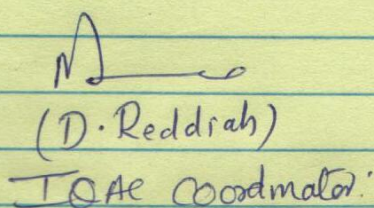 (D. Reddiah)
IQAC Coordinator.